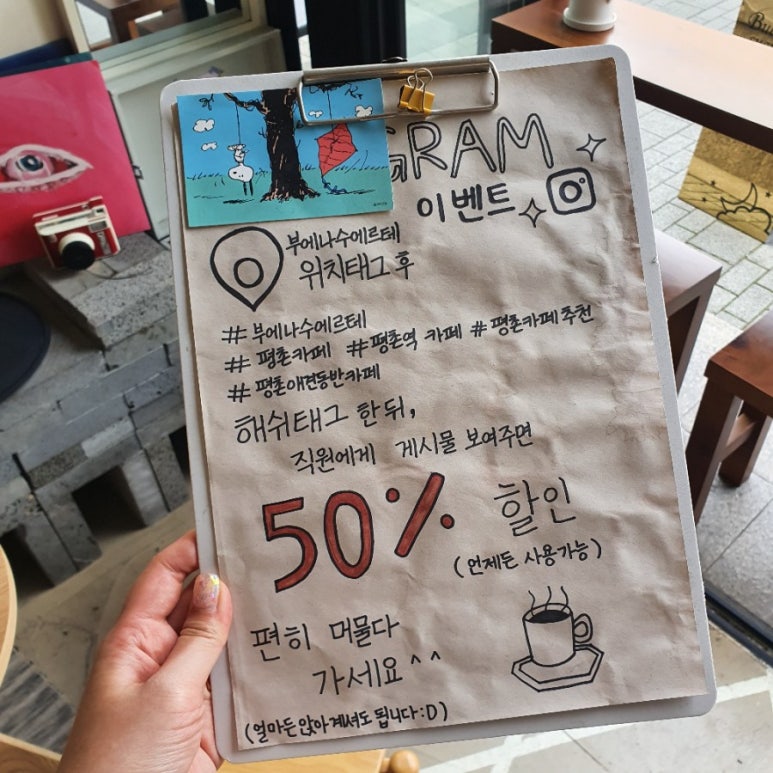 GRAM
이벤트
부에나수에르테
위치태그 후
# 부에나수에르테
# 평촌카페 # 평촌역 카페 # 평촌카페추천
# 평촌애견동반카페
해쉬태그 한 뒤,
직원에게 게시물 보여주면
50% 할인
(언제든 사용가능)
편히 머물다
가세요^^
(얼마든 앉아계셔도 됩니다:D)